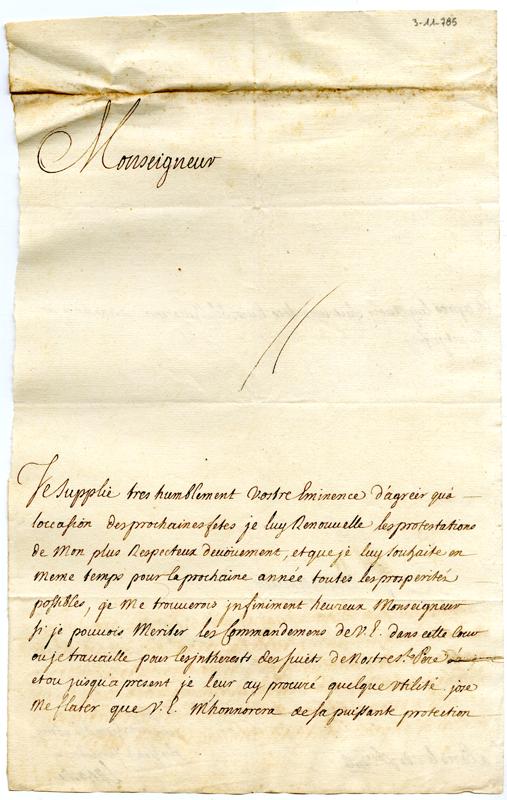 3-11-785
Monseigneur
Je supplie tres humblement Vostre Eminence d'agréér qu'à
l'occasion des prochaines fetes je luy Renouvelle les protestations
de Mon plus Respecteux devoüement, et que je luy souhaite en
meme temps pour la prochaine année toutes les prosperités
possibles, je me trouverois jnfiniment heureux Monseigneur
si je pouvois Meriter les Commandemens de V. E. dans cette Cour
ou je travaille pour les jntherests des sujets de Nostre St. Pere
et ou jusqu'a present je leur ay procuré quelque Vtilité. jose
Me flater que V. E. M'honnorera de sa puissante protection